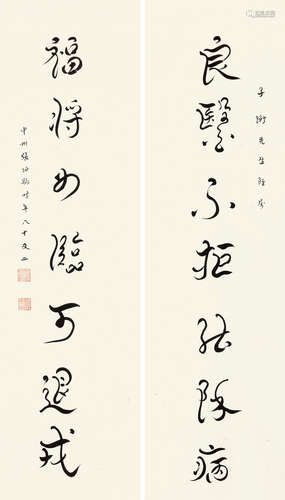 子衡先生雅
良醫不拒能除病
福將如臨可退戎
中州張伯駒時年八十又二